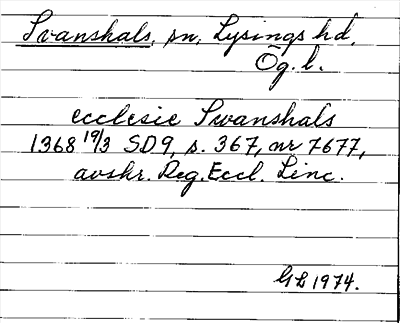 Svanshals, sn, Lysings hd,
Ög. l.
ecclesie Swanshals
1368 19/3 SD9, s. 367, nr 7677,
avskr. Reg. Eccl. Linc.
GL 1974.